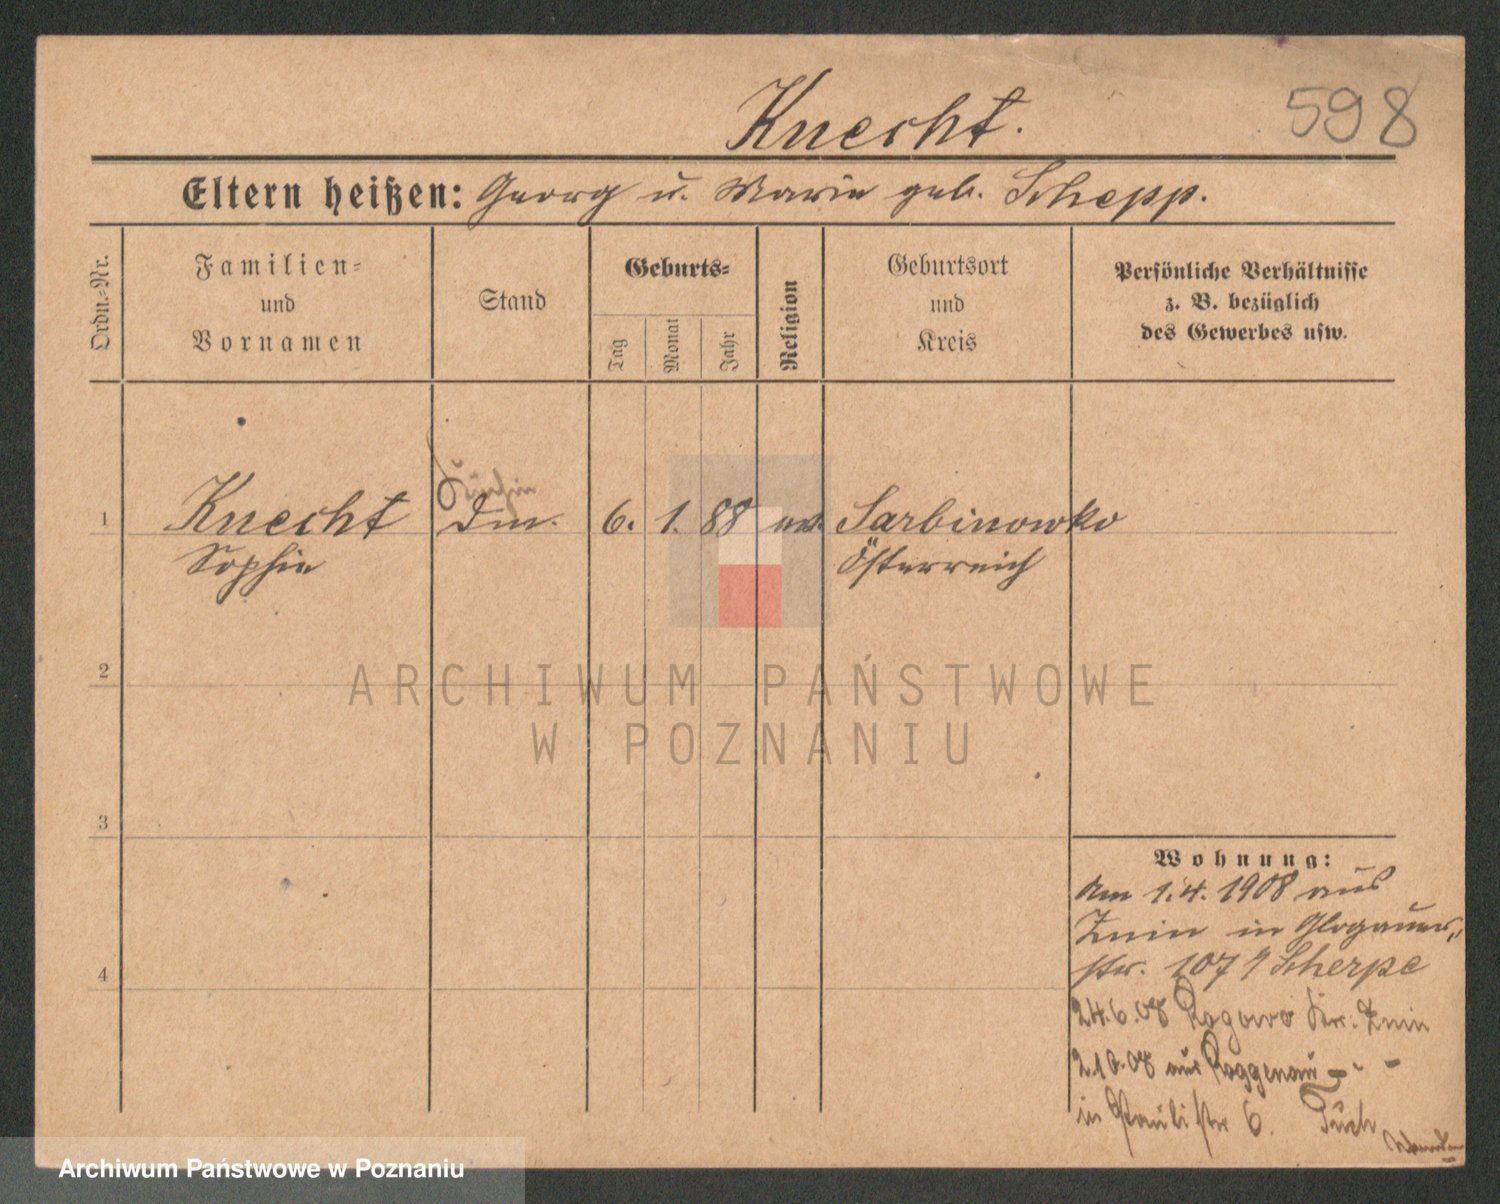 598
Knecht.
Eltern heißen: Georg u. Marie geb. Schepp.
Ordn.-Nr.
Familien-
und
Vornamen
Stand
Geburts-
Tag
Monat
Jahr
Religion
Geburtsort
und
Kreis
Persönliche Verhältnisse
z. B. bezüglich
des Gewerbes usw.
Köchin
1 Knecht 6. 1. 88 ev. Sarbinowko
Sophie Österreich
2
ARCHIWUM PAŃSTWOWE
W POZNANIU
3
Wohnung:
Am 1.4.1908 aus
Znin in Glogauer-
str. 107 Scherpe
4
24.6.08 Rogowo Kr. Znin
2.10.08 aus Roggenau - -
in Paulistr 6.
Archiwum Państwowe w Poznaniu